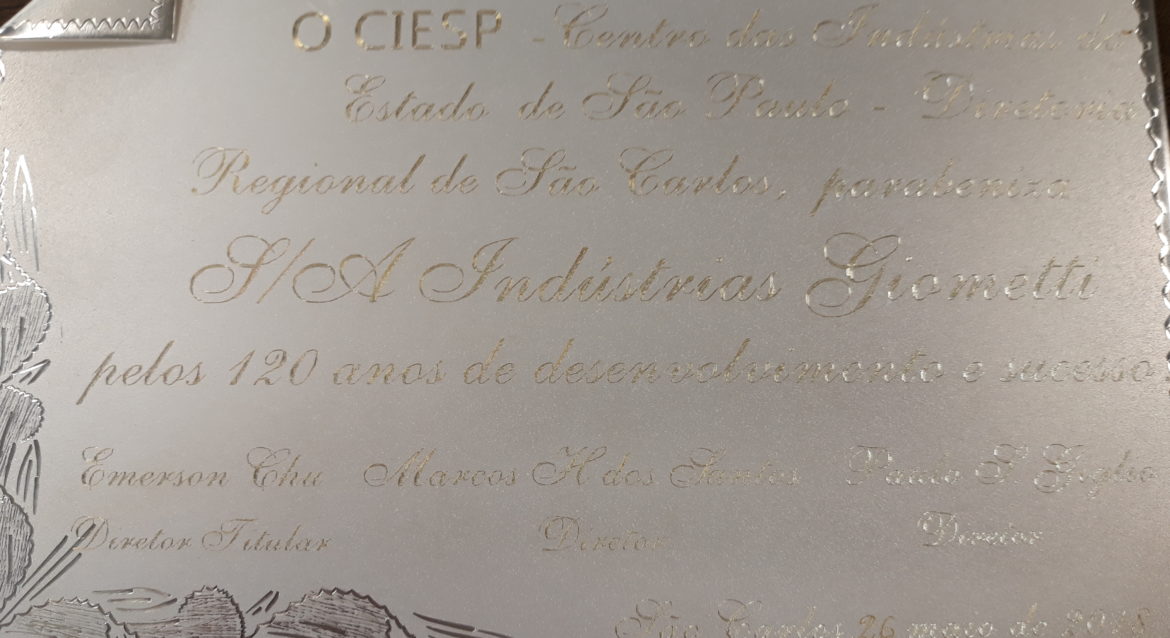 O CIESP - Centro das Indústrias do
Estado de São Paulo - Diretoria
Regional de São Carlos, parabeniza
S/A Indústrias Giometti
pelos 120 anos de desenvolvimento e sucesso
Emerson Chu Marcos H dos Santos Paulo S. Giglio
Diretor Titular Diretor Diretor
São Carlos 26 março de 2018